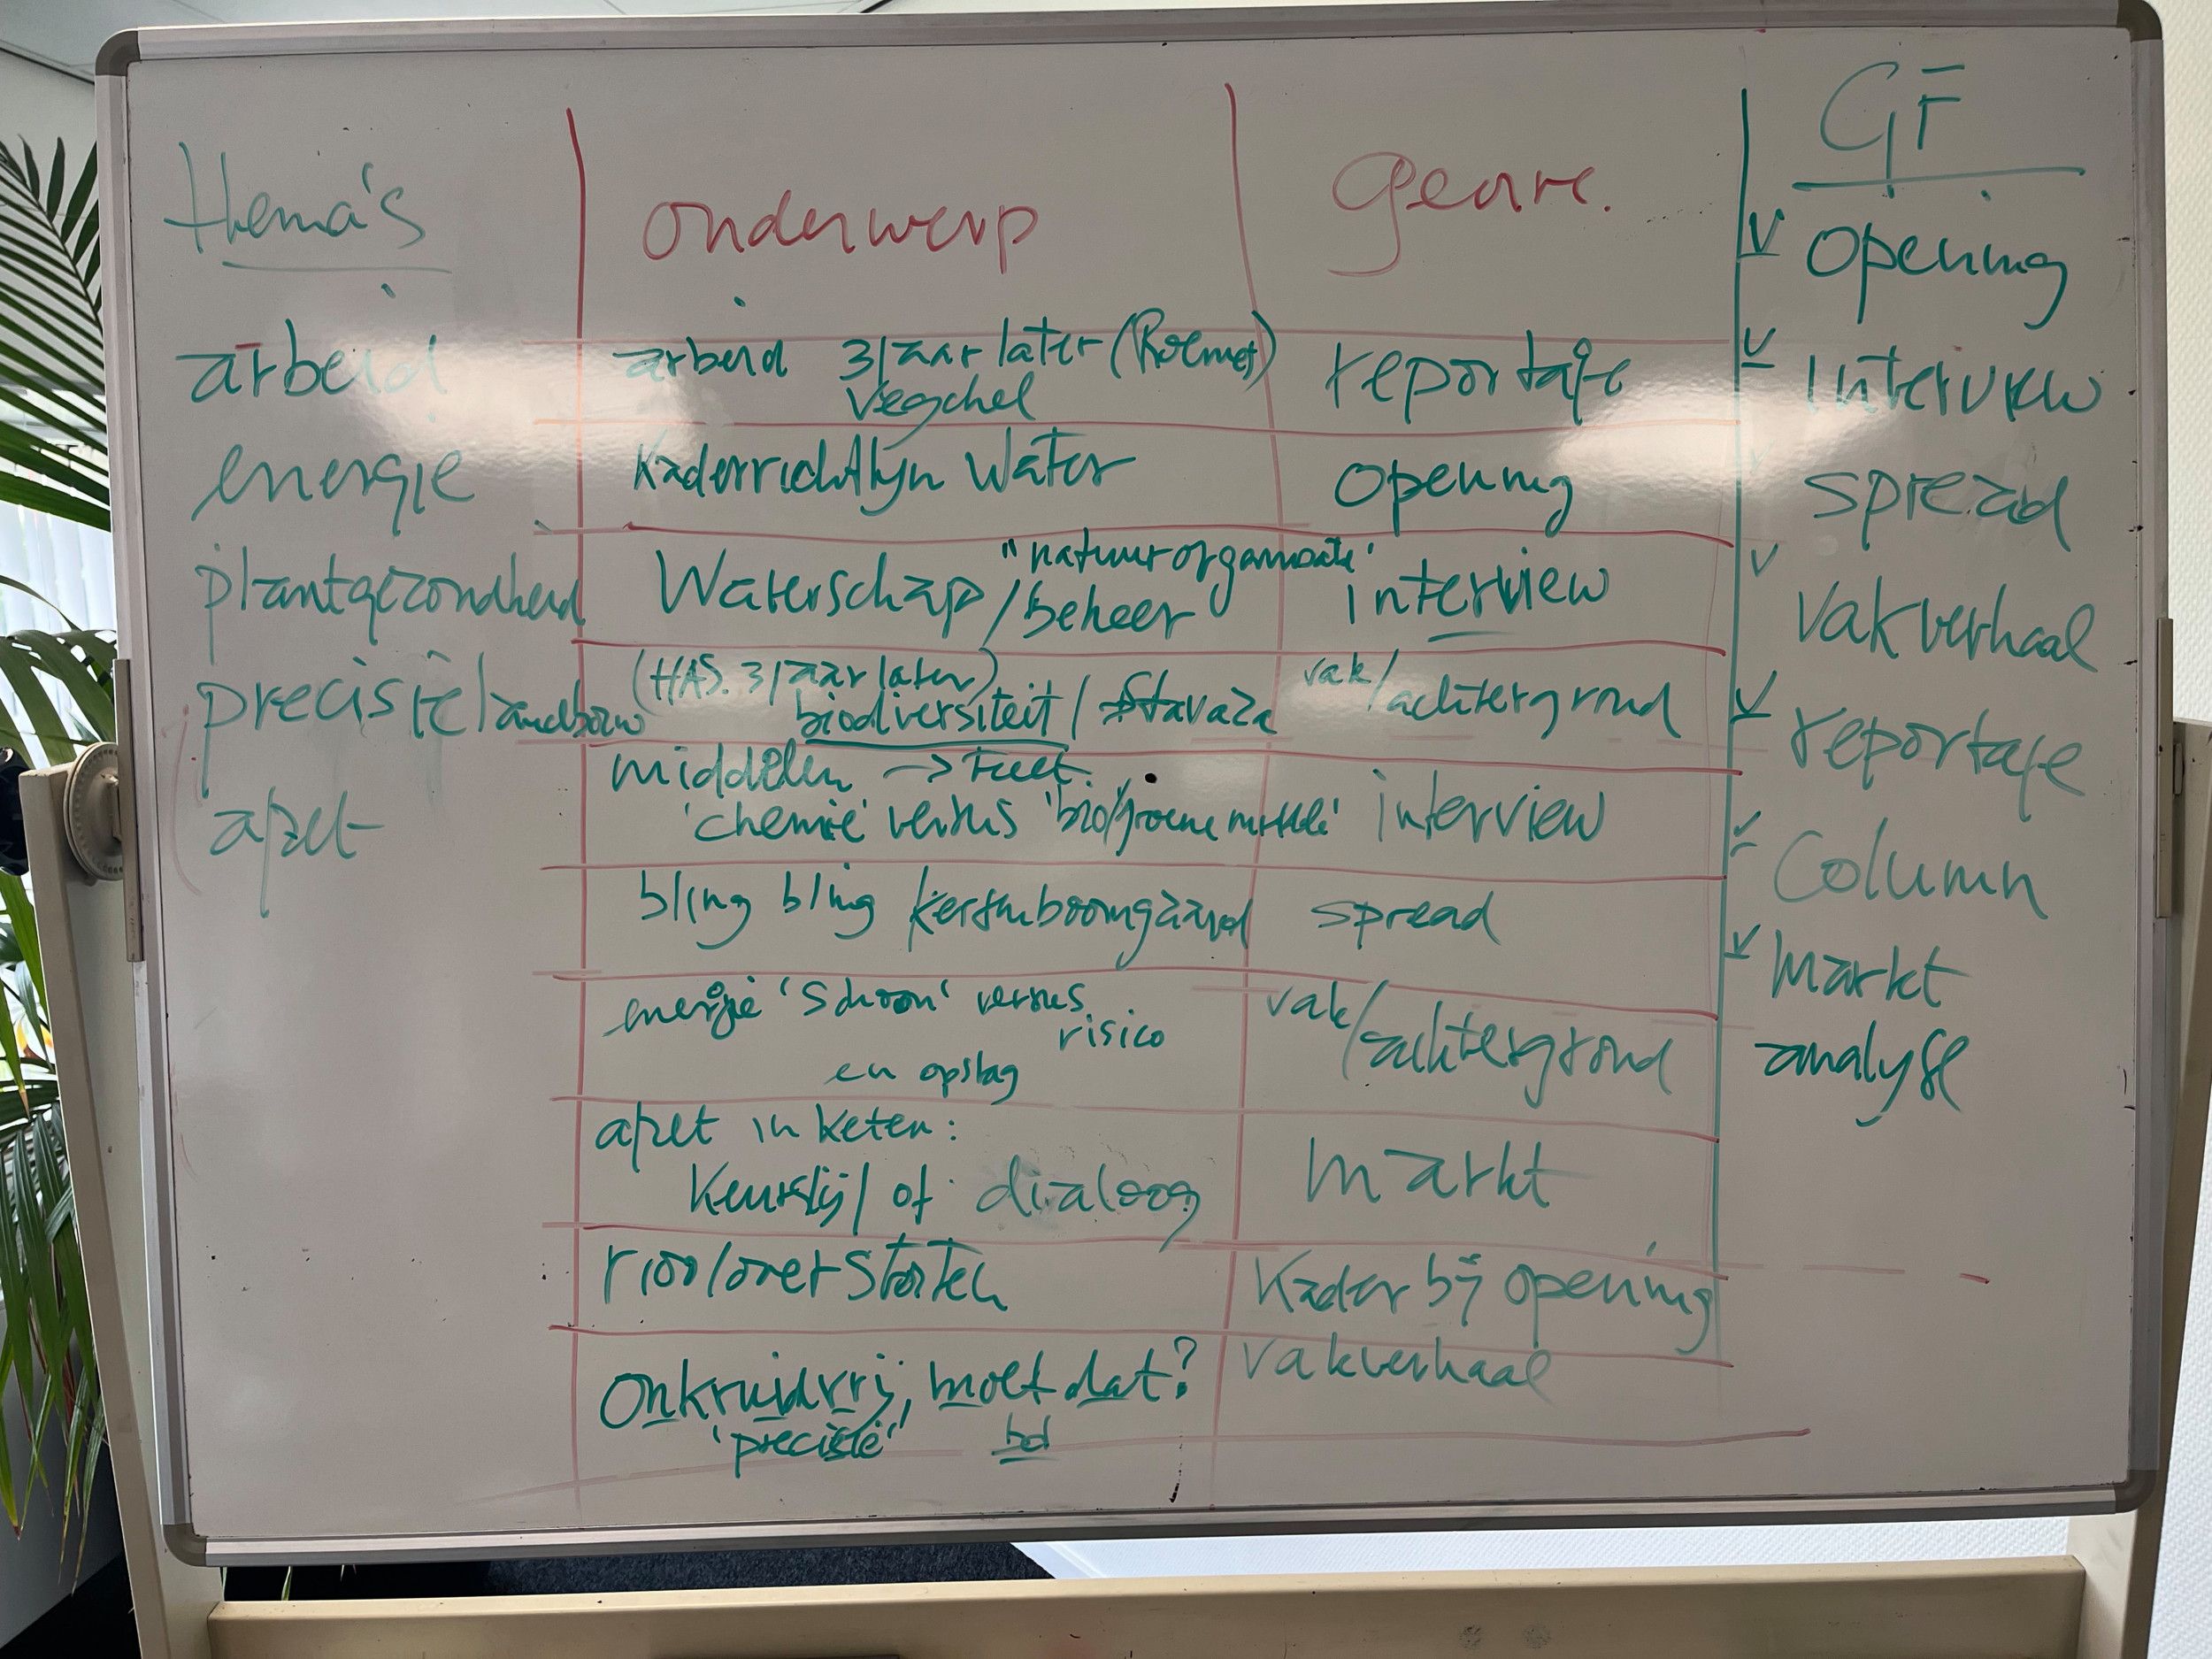 thema's
arbeid
energie
plantgezondheid
precisielandbouw
afzet
onderwerp
genre.
arbeid 3 jaar later (Roemet)
Vegchel
reportage
Kaderrichtlijn Water
opening
Waterschap/beheer
"natuurorganisatie"
interview
(HAS. 3 jaar later)
biodiversiteit / stavaza
vak/achtergrond
middelen ->
'chemie' versus 'bio/groene middel'
interview
bling bling kersenboomgaard
spread
energie 'schoon' versus
risico
en opslag
vak/achtergrond
afzet in keten:
Keurslijf of dialoog
markt
riooloverstorten
Kader bij opening
Onkruidvrij, moet dat?
'precisie' bd
vakverhaal
GF
V opening
V interview
V spread
V vakverhaal
V reportage
V Column
V markt
analyse